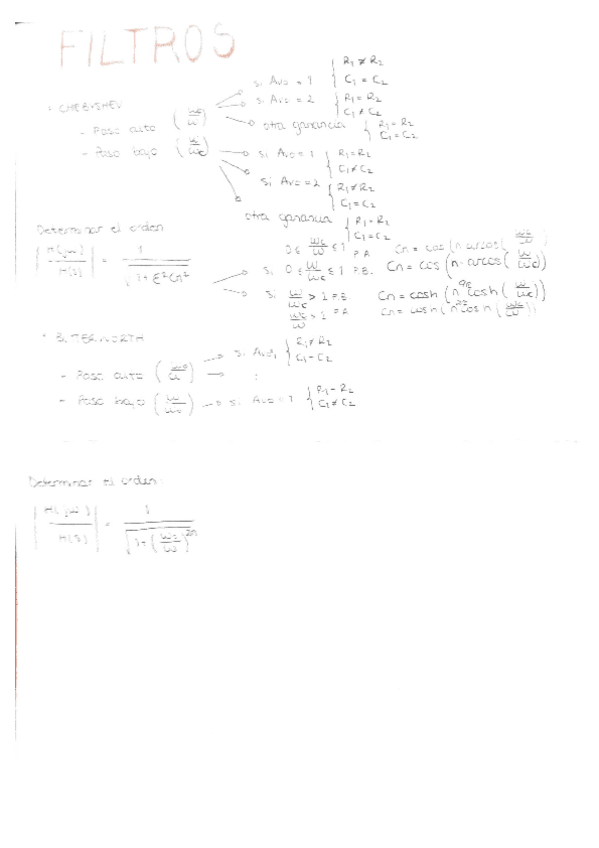 FILTROS
· CHEBYSHEV
- Paso alto (wc/w)
si Avo = 1 { R1 ≠ R2 C1 = C2
si Avo = 2 { R1 = R2 C1 ≠ C2
otra ganancia { R1 = R2 C1 = C2
- Paso bajo (w/wc)
si Avo = 1 { R1 = R2 C1 ≠ C2
si Avo = 2 { R1 ≠ R2 C1 = C2
otra ganancia { R1 = R2 C1 = C2
Determinar el orden
= 1 / √(1 + ε²Cn²)
0 ≤ wc/w ≤ 1 P.A. Cn = cos (n arcos (wc/w))
si 0 ≤ w/wc ≤ 1 P.B. Cn = cos (n · arcos (w/wc))
si w/wc > 1 P.B. Cn = cosh (n cosh (w/wc))
wc/w > 1 P.A. Cn = cosh (n cosh (wc/w))
· BUTTERWORTH
- Paso alto
si Avo1 { R1 ≠ R2 C1 = C2
- Paso bajo (w/wc)
si Avo = 1 { R1 = R2 C1 ≠ C2
Determinar el orden:
= 1 / √(1 + (wc/w)^2n)